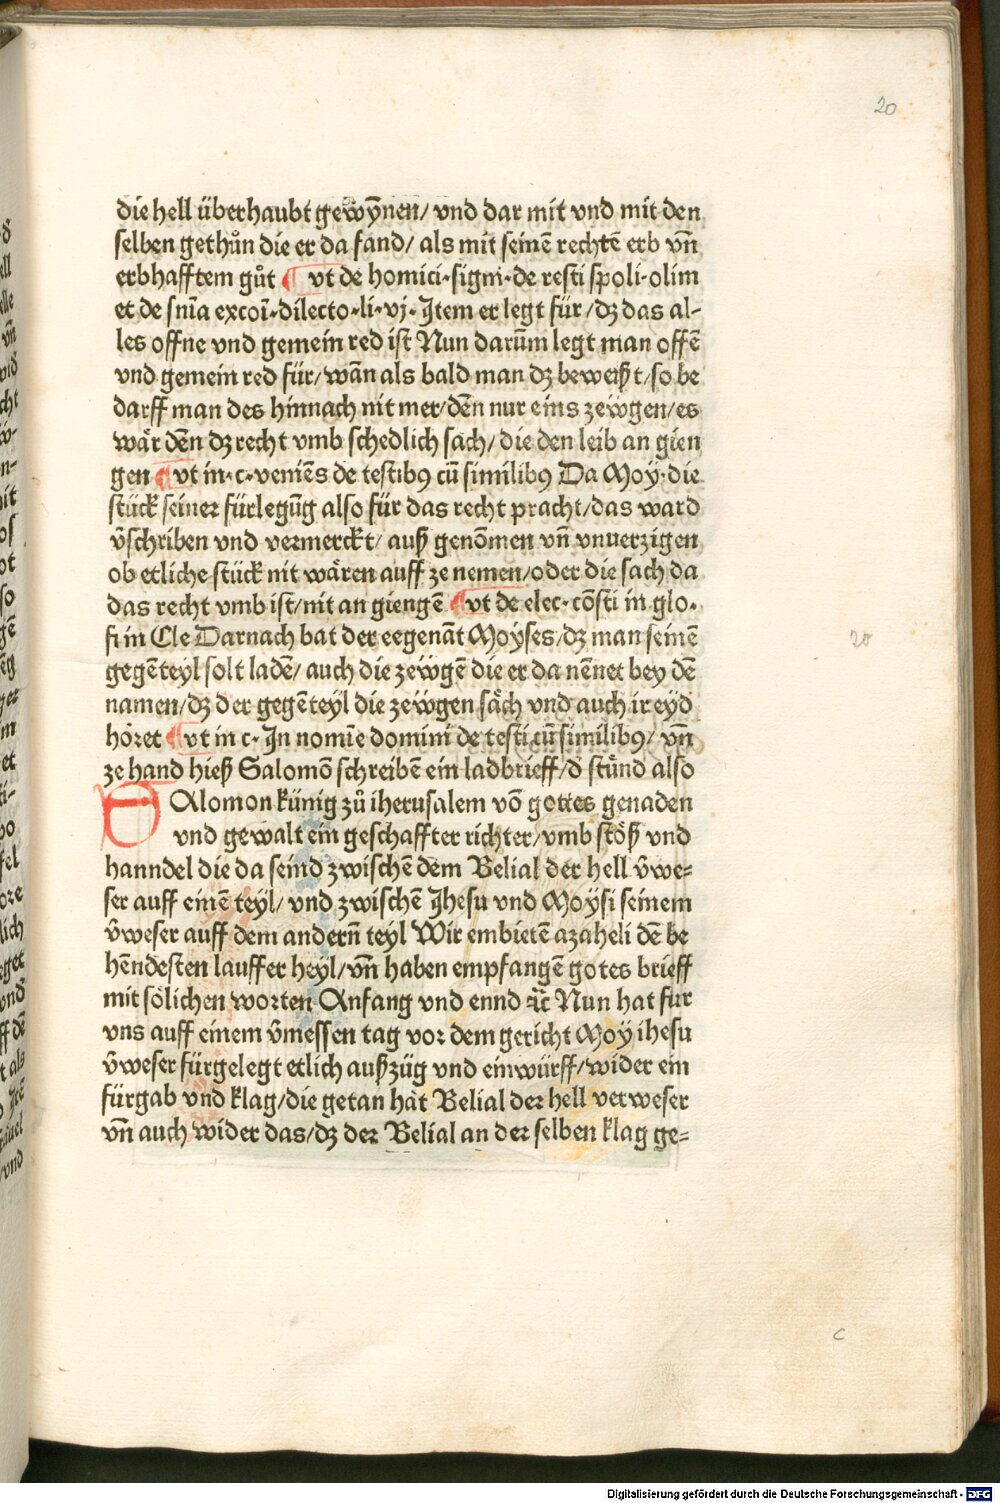 20
die hell überhaubt gewẏnen/ vnd dar mit vnd mit den
selben gethůn die er da fand/ als mit seinē rechtē erb vn̄
erbhafftem gůt ¶ vt de homici·signi·de resti spoli·olim
et de snīa excoī·dilecto·li·vj· Item er legt für/dꝫ das al-
les offne vnd gemein red ist Nun darūm legt man offē
vnd gemein red für/wān als bald man dꝫ beweißt/so be
darff man des hinnach nit mer/dēn nur eins zeẅgen/es
wår dēn dꝫ recht vmb schedlich sach/die den leib an gien
gen ¶ vt in·c·veniēs de testibꝰ cū similibꝰ Da Moy·die
stück seiner fürlegūg also für das recht pracht/das ward
v̄schriben vnd vermerckt/ auß genōmen vn̄ vnuerzigen
ob etliche stück nit wåren auff ze nemen/oder die sach da
das recht vmb ist/nit an giengē ¶ vt de elec·cōsti in glo·
fi in Cle Darnach bat der eegenāt Moyses/dꝫ man seinē
gegēteyl solt ladē/ auch die zeẅgē die er da nēnet bey dē
namen/dꝫ der gegēteyl die zeẅgen såch vnd auch ir eyd
höret ¶ vt in c· In nomīe domini de testi cū similibꝰ/ vn̄
ze hand hieß Salomō schreibē ein ladbrieff/d stůnd also
SAlomon künig zů iherusalem vō gottes genaden
vnd gewalt ein geschaffter richter/vmb stöß vnd
hanndel die da seind zwischē dem Belial der hell v̄we=
ser auff einē teyl/ vnd zwischē Jhesu vnd Moysi seinem
v̄weser auff dem andern̄ teyl Wir embietē azaheli dē be
hēndesten lauffer heyl/vn̄ haben empfangē gotes brieff
mit sölichen worten Anfang vnd ennd ꝛc̄ Nun hat für
vns auff einem v̄messen tag vor dem gericht Moy ihesu
v̄weser fürgelegt etlich außzüg vnd einwürff/wider ein
fürgab vnd klag/die getan hat Belial der hell verweser
vn̄ auch wider das/dꝫ der Belial an der selben klag ge=
20
c
Digitalisierung gefördert durch die Deutsche Forschungsgemeinschaft - DFG